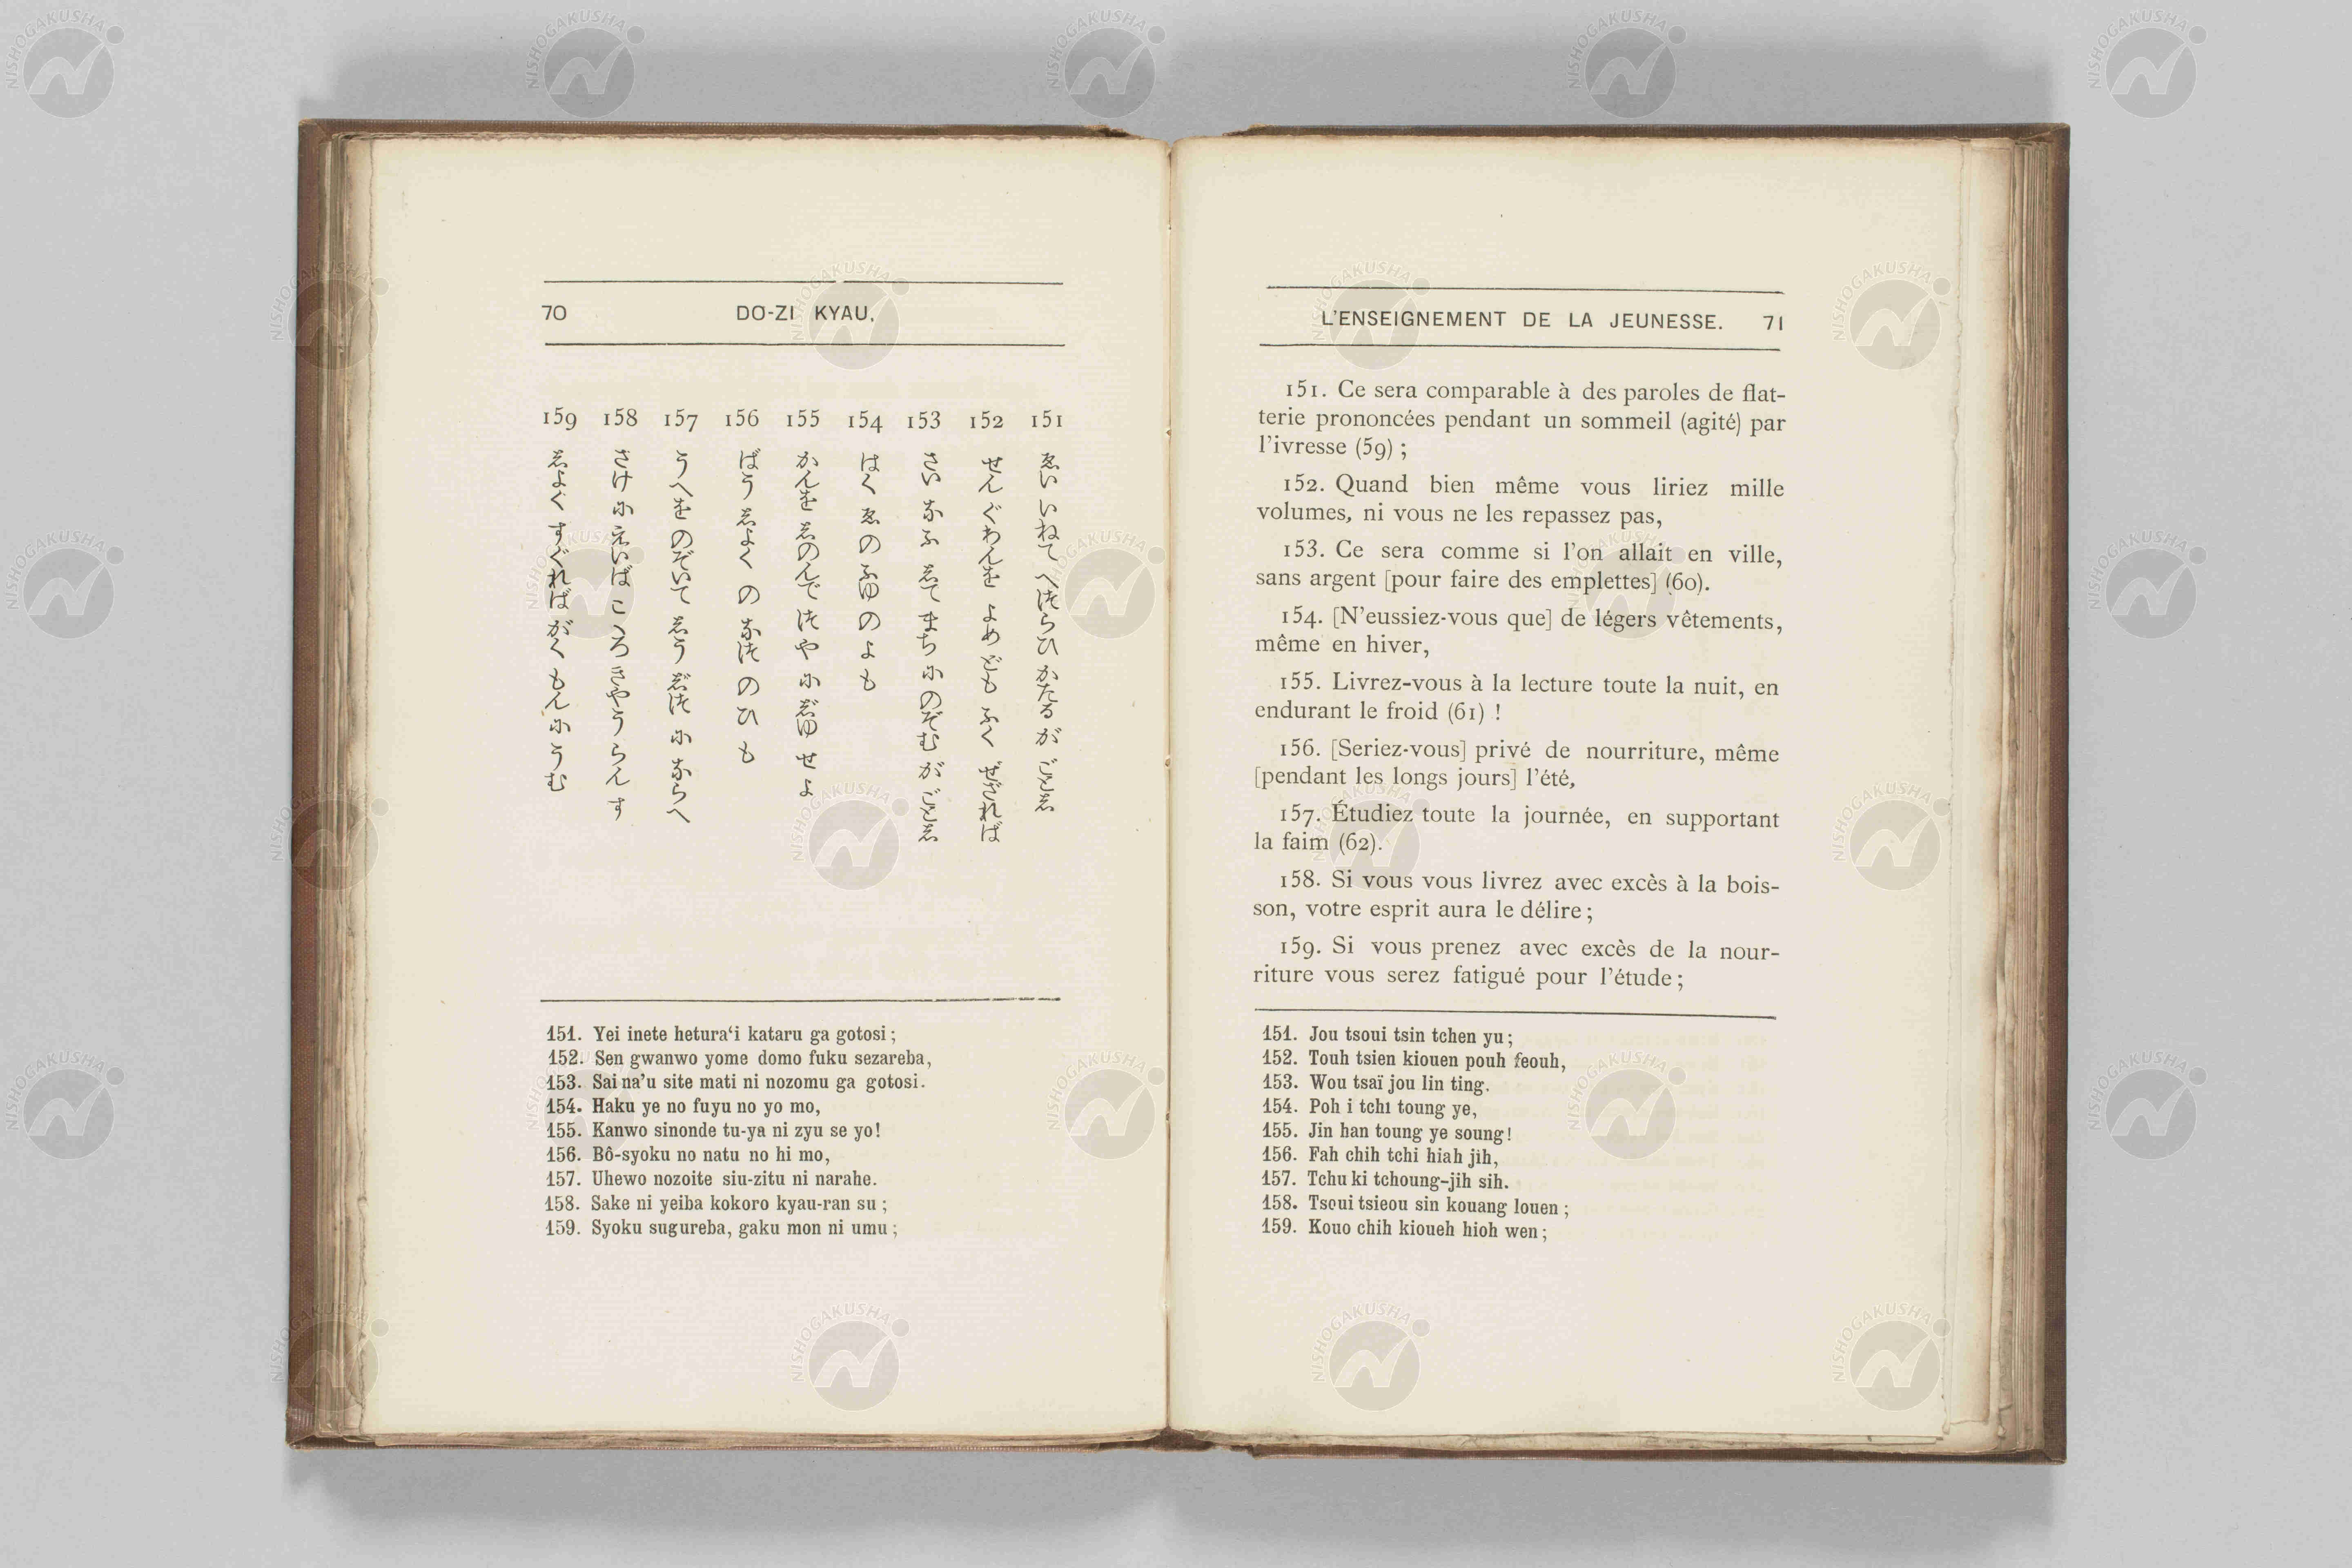 70 DO-ZI KYAU.
151 ゑいいねてへつらひかたるがごとし
152 せんぐわんをよめどもふくせざれば
153 さいなふしてまちにのぞむがごとし
154 はくゑのふゆのよも
155 かんをしのんでつやにじゆせよ
156 ばうしよくのなつのひも
157 うへをのぞいてしうじつにならへ
158 さけにえいばこゝろきやうらんす
159 しよくすぐればがくもんにうむ
151. Yei inete hetura‘i kataru ga gotosi;
152. Sen gwanwo yome domo fuku sezareba,
153. Sai na’u site mati ni nozomu ga gotosi.
154. Haku ye no fuyu no yo mo,
155. Kanwo sinonde tu-ya ni zyu se yo!
156. Bô-syoku no natu no hi mo,
157. Uhewo nozoite siu-zitu ni narahe.
158. Sake ni yeiba kokoro kyau-ran su;
159. Syoku sugureba, gaku mon ni umu;
L’ENSEIGNEMENT DE LA JEUNESSE. 71
151. Ce sera comparable à des paroles de flat-
terie prononcées pendant un sommeil (agité) par
l’ivresse (59);
152. Quand bien même vous liriez mille
volumes, ni vous ne les repassez pas,
153. Ce sera comme si l’on allait en ville,
sans argent [pour faire des emplettes] (60).
154. [N’eussiez-vous que] de légers vêtements,
même en hiver,
155. Livrez-vous à la lecture toute la nuit, en
endurant le froid (61) !
156. [Seriez-vous] privé de nourriture, même
[pendant les longs jours] l’été,
157. Étudiez toute la journée, en supportant
la faim (62).
158. Si vous vous livrez avec excès à la bois-
son, votre esprit aura le délire;
159. Si vous prenez avec excès de la nour-
riture vous serez fatigué pour l’étude;
151. Jou tsoui tsin tchen yu;
152. Touh tsien kiouen pouh feouh,
153. Wou tsaï jou lin ting.
154. Poh i tchi toung ye,
155. Jin han toung ye soung!
156. Fah chih tchi hiah jih,
157. Tchu ki tchoung-jih sih.
158. Tsoui tsieou sin kouang louen;
159. Kouo chih kioueh hioh wen;
NISHOGAKUSHA